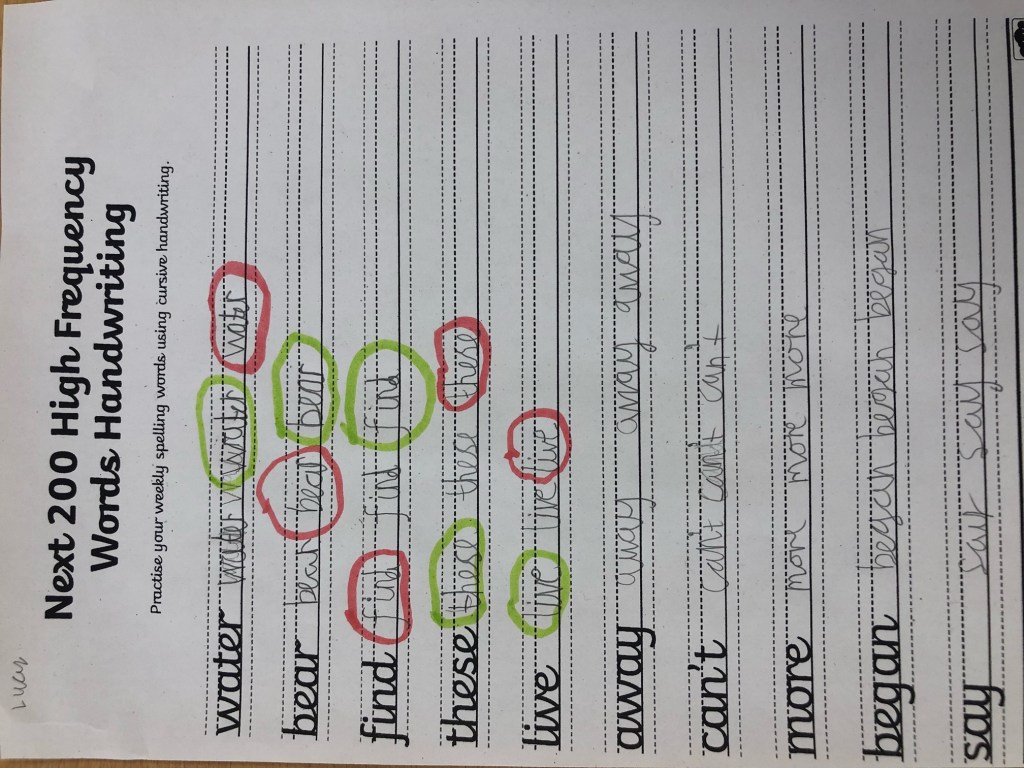 Lucas
Next 200 High Frequency
Words Handwriting
Practise your weekly spelling words using cursive handwriting.
water water water water
bear bear bear bear
find find find find
these theses these these
live live live live
away away away away
can't can't can't can't
more more more more
began began began began
say say say say